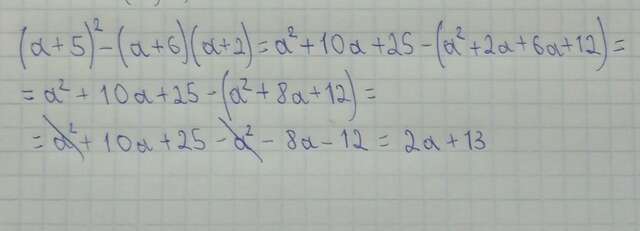 (a+5)²-(a+6)(a+2)=a²+10a+25-(a²+2a+6a+12)=
=a²+10a+25-(a²+8a+12)=
=a²+10a+25-a²-8a-12=2a+13